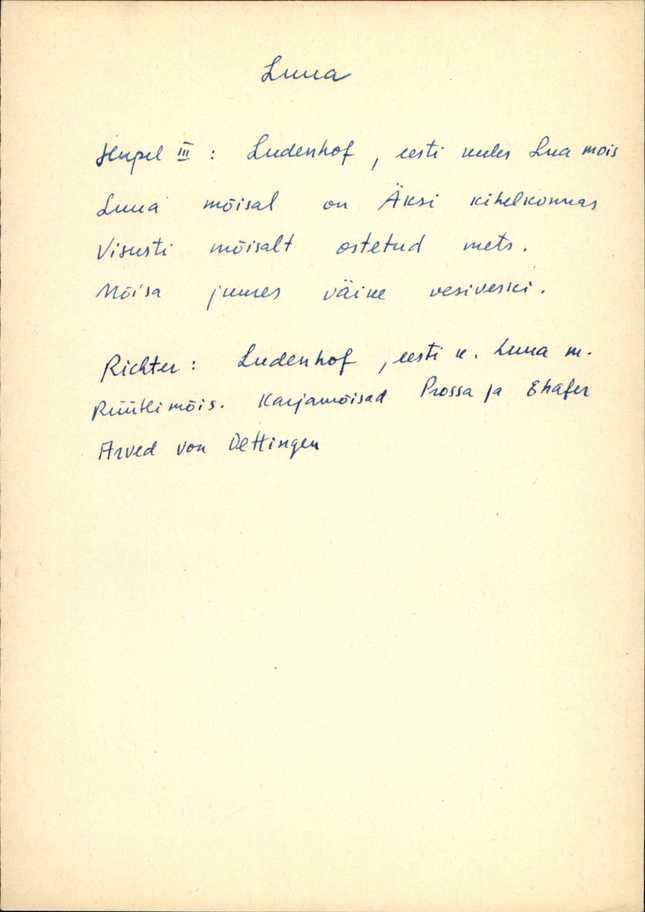 Luua
Hupel III : Ludenhof, eesti keeles Lua mois
Luua mõisal on Äksi kihelkonnas
Visusti mõisalt ostetud mets.
Mõisa juures väike vesiveski.
Richter : Ludenhof, eesti k. Luua m.
Rüütlimõis. Karjamõisad Prossa ja Ehafer
Arved von Oettingen